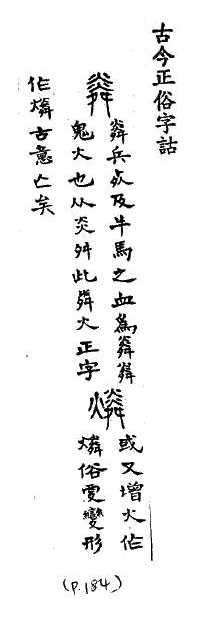 古今正俗字詁
㷠
㷠兵死及牛馬之血爲㷠㷠
鬼火也从炎舛此㷠火正字
燐
或又增火作
燐俗更變形
作燐古意亡矣
(P.184)